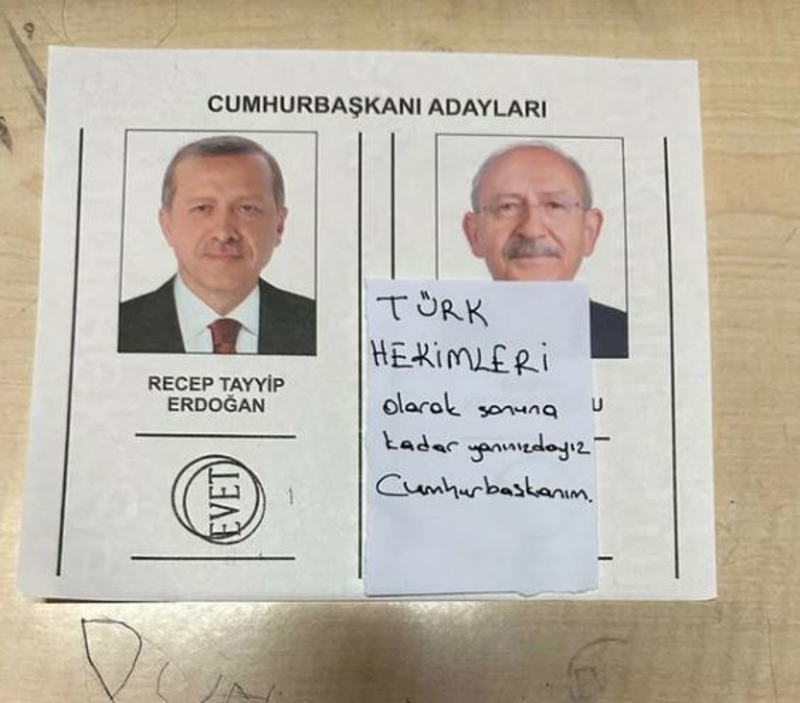 CUMHURBAŞKANI ADAYLARI
RECEP TAYYİP
ERDOĞAN
EVET
TÜRK
HEKİMLERİ
olarak sonuna
kadar yanınızdayız
Cumhurbaşkanım.
U